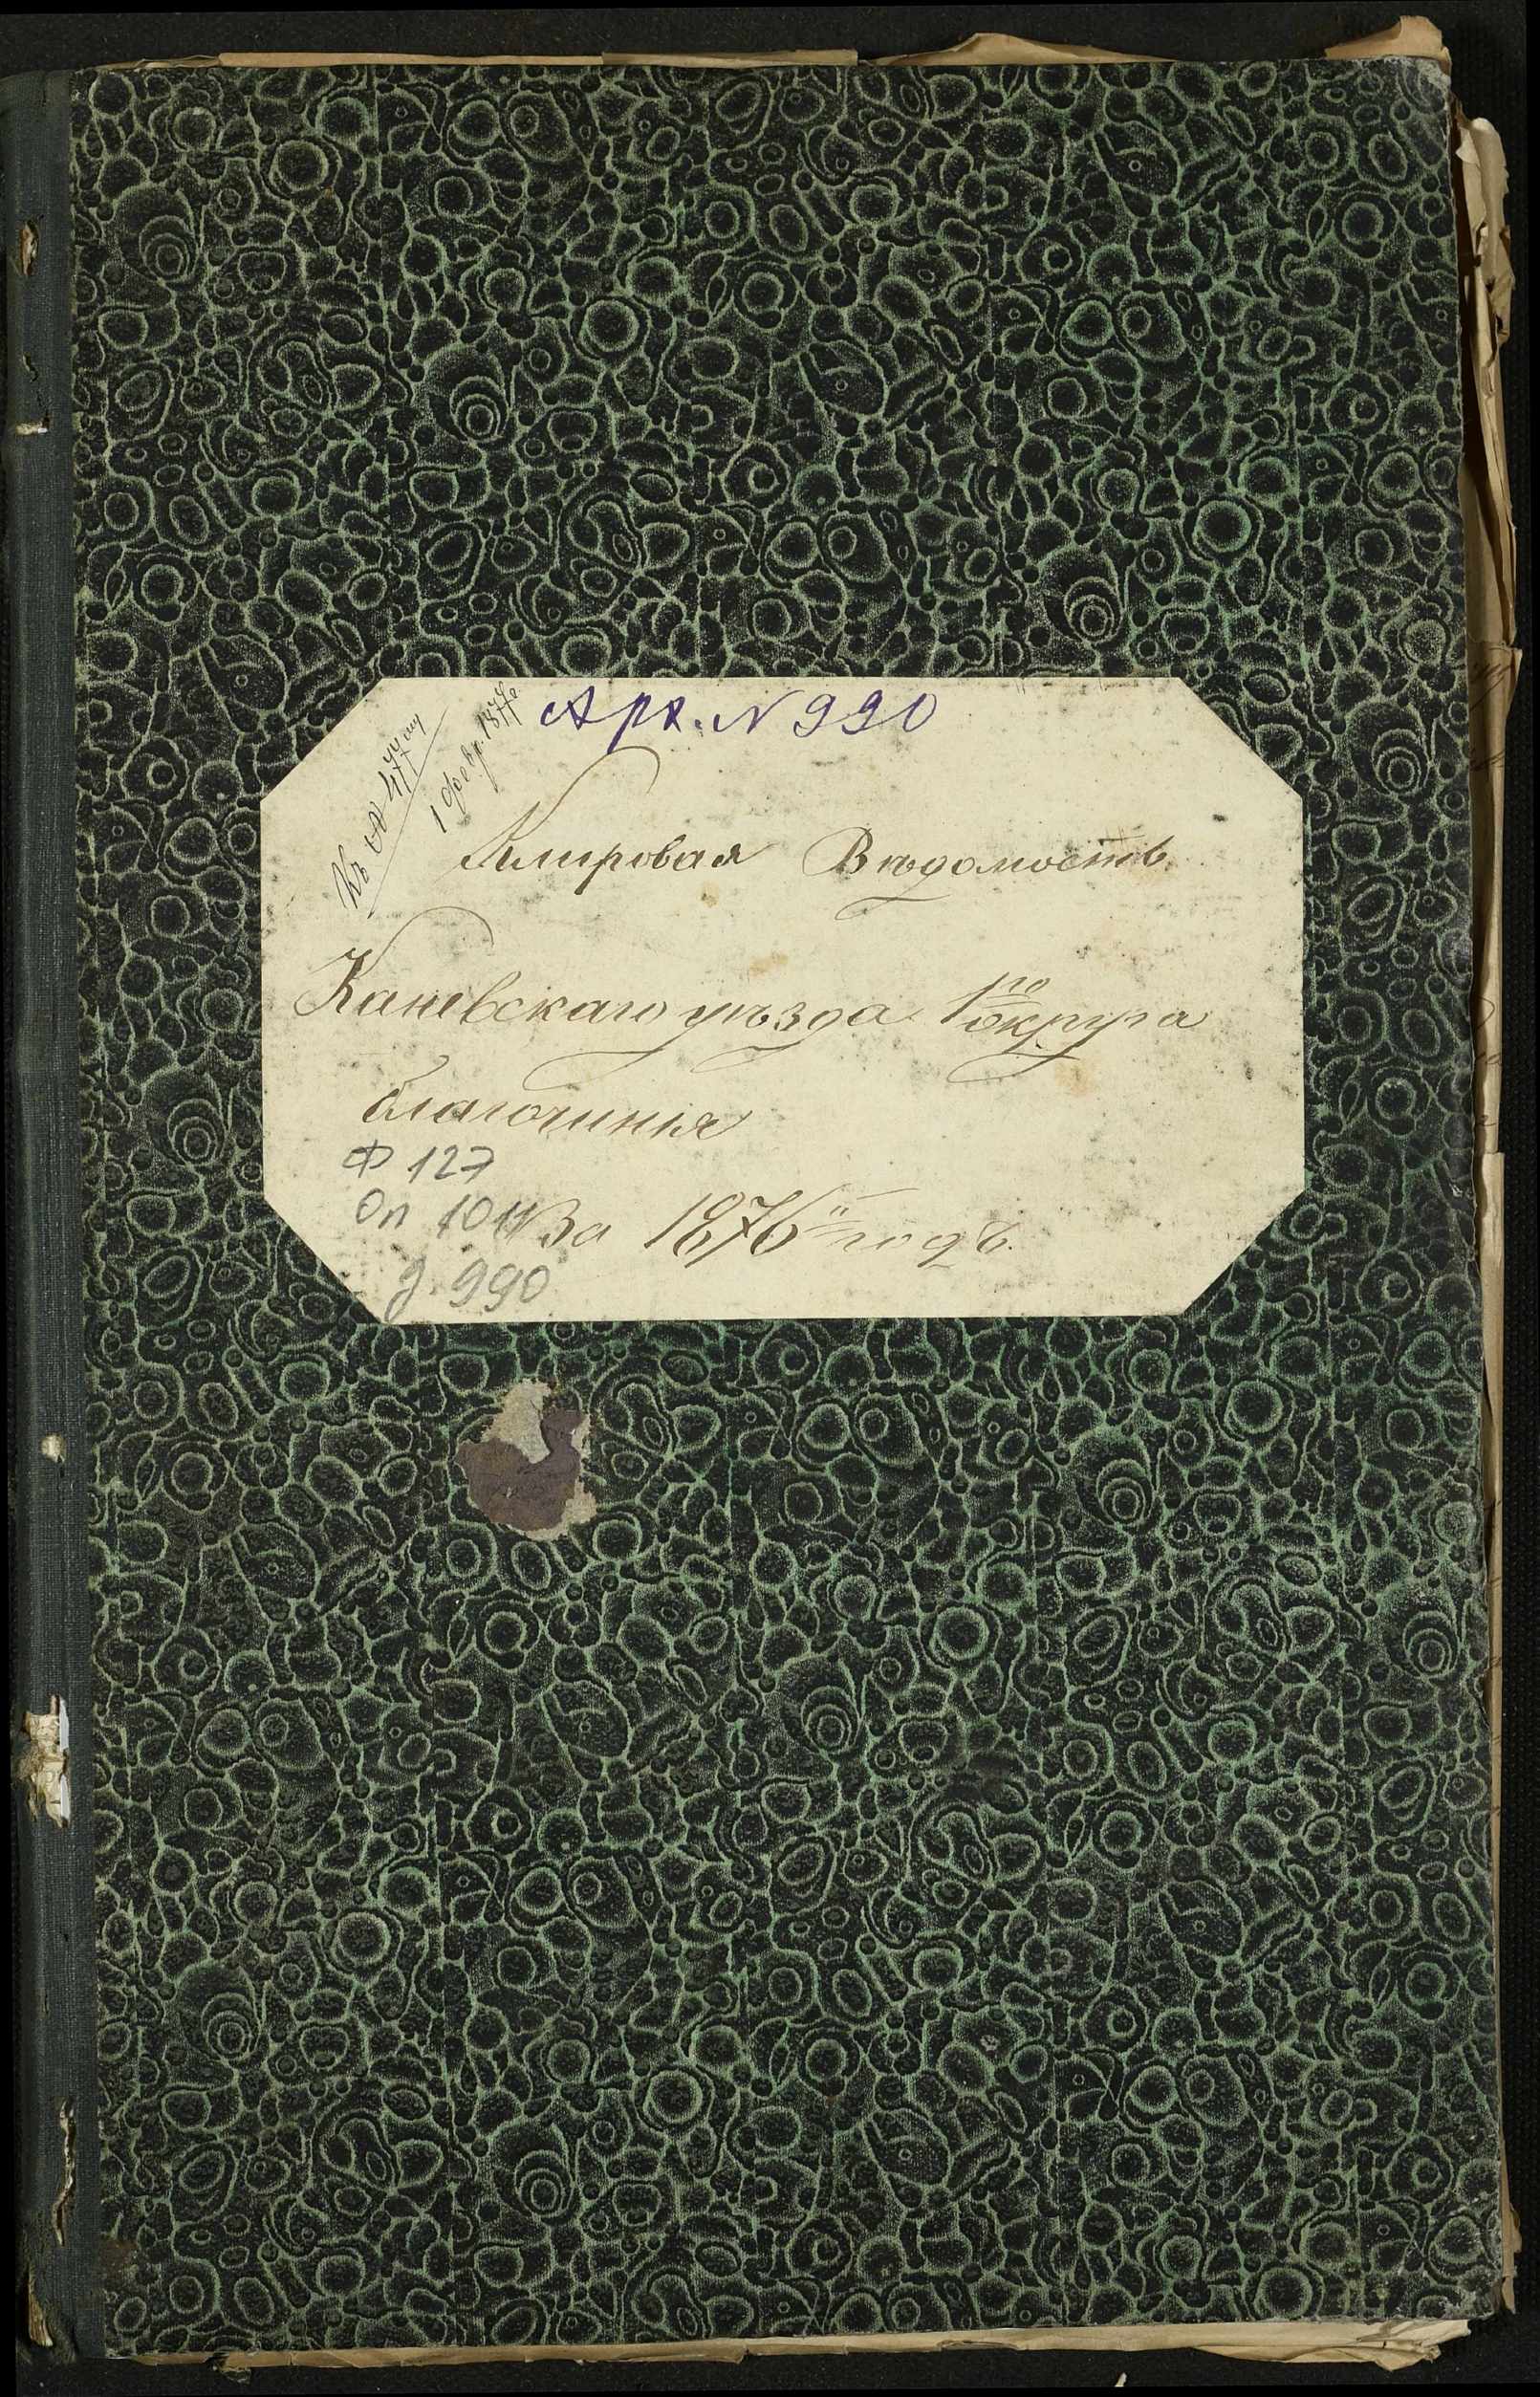 Арх. N 990
Къ № 
1 февр. 1877 г.
Клировая Вѣдомость
Каневскаго уѣзда 1го округа
благочинія
Ф 127
Оп 1011
За 1876й годъ.
д. 990